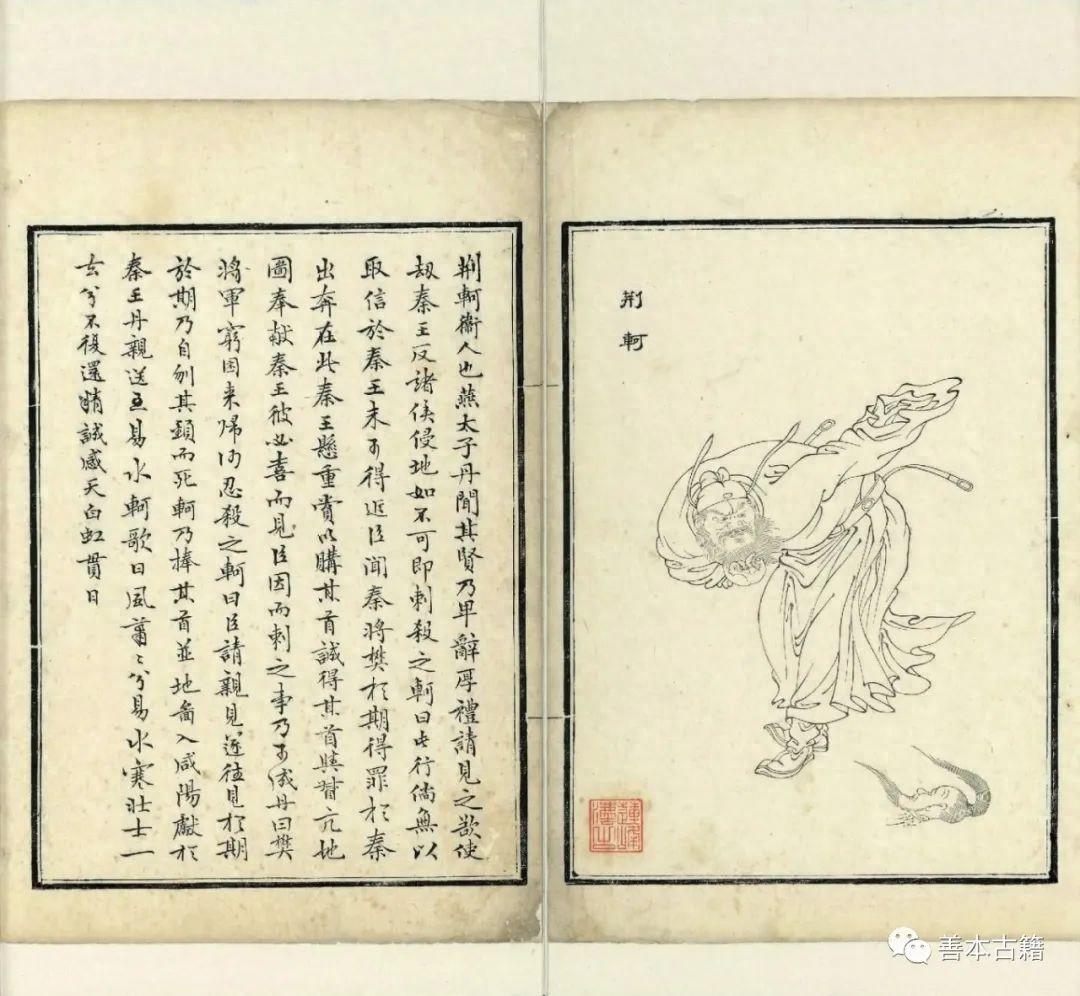 荆軻
荆軻衛人也燕太子丹聞其賢乃卑辭厚禮請見之欲使
劫秦王反諸侯侵地如不可即刺殺之軻曰此行倘無以
取信於秦王未可得近臣聞秦將樊於期得罪於秦
出奔在此秦王懸重賞以購其首誠得其首與督亢地
圖奉献秦王彼必喜而見臣因而刺之事乃可成丹曰樊
將軍窮困来歸何忍殺之軻曰臣請親見遂往見於期
於期乃自刎其頸而死軻乃捧其首並地啚入咸陽獻於
秦王丹親送至易水軻歌曰風蕭〻兮易水寒壯士一
去兮不復還精誠感天白虹貫日
善本古籍